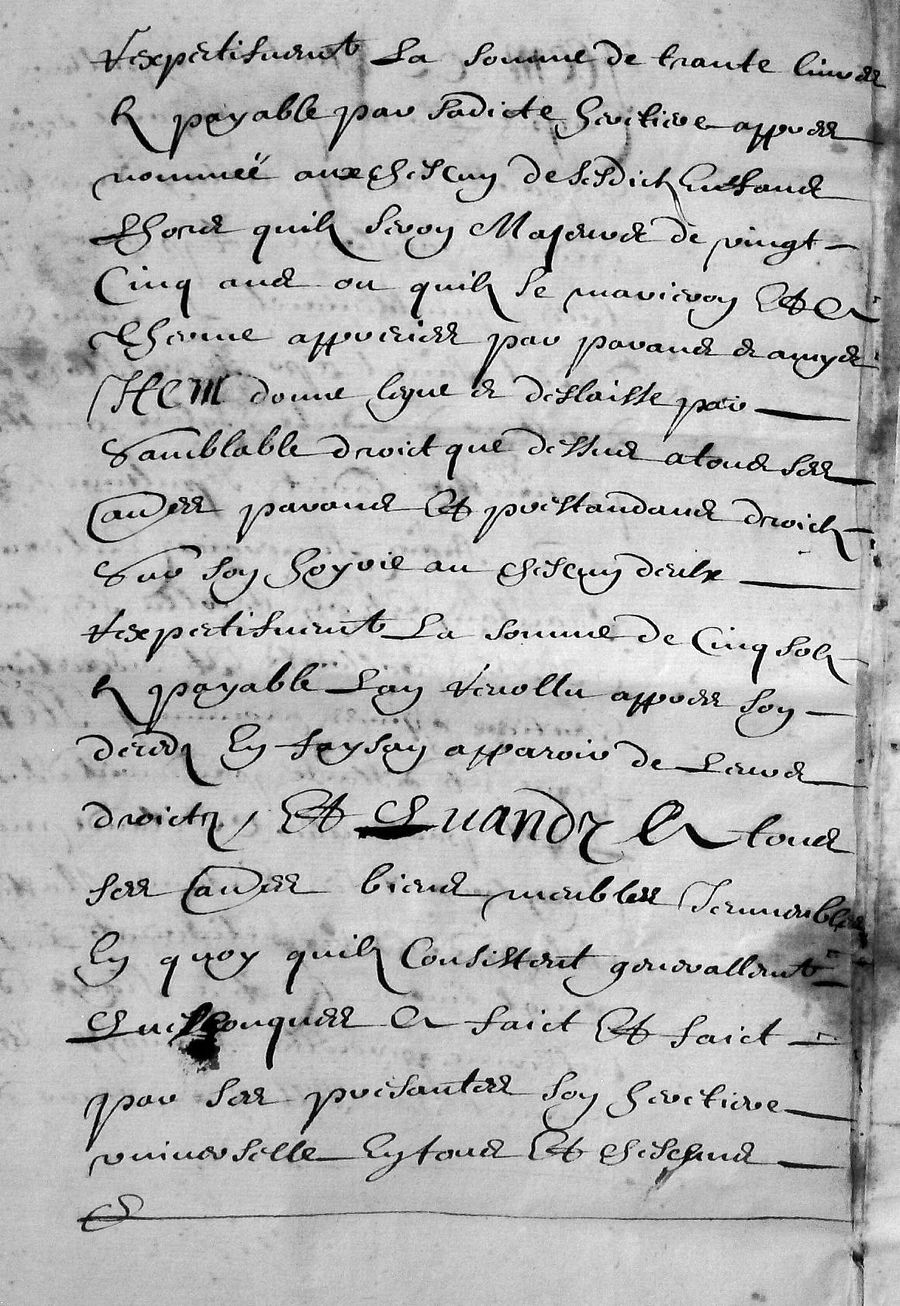 respectifvement La somme de trante livres
payable par sadicte heretiere appres
nommee aux chescung de sesdictz Enffans
Lhors quilz seron Majeurs de vingt
Cinq ans ou quilz se marieron Et a
Therme apprecies par parans & amys
Item donne legue & deslaisse par
Samblable droict que dessus a tous ses
autres parans Et prestandans droictz
Sur son hoyrie au chescung deulx
respectifvement La somme de Cinq solz
payable Lan revollu appres son
deces En faysan apparoir de Leurs
droictz / Et Quand a tous
ses autres biens meubles Immeubles
En quoy quilz Consistent generallement
Quelconques a faict Et faict
par ses presantes son heretiere
universelle En tous Et chescungs